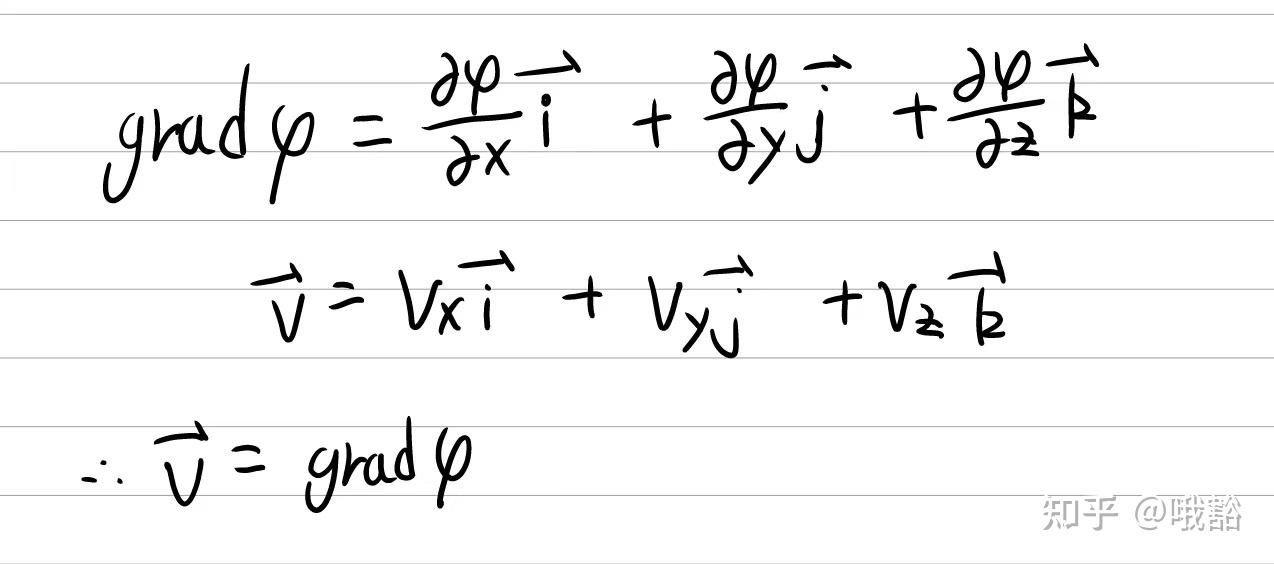 grad φ = ∂φ/∂x i⃗ + ∂φ/∂y j⃗ + ∂φ/∂z k⃗
v⃗ = Vx i⃗ + Vy j⃗ + Vz k⃗
∴ v⃗ = grad φ
知乎 @哦豁